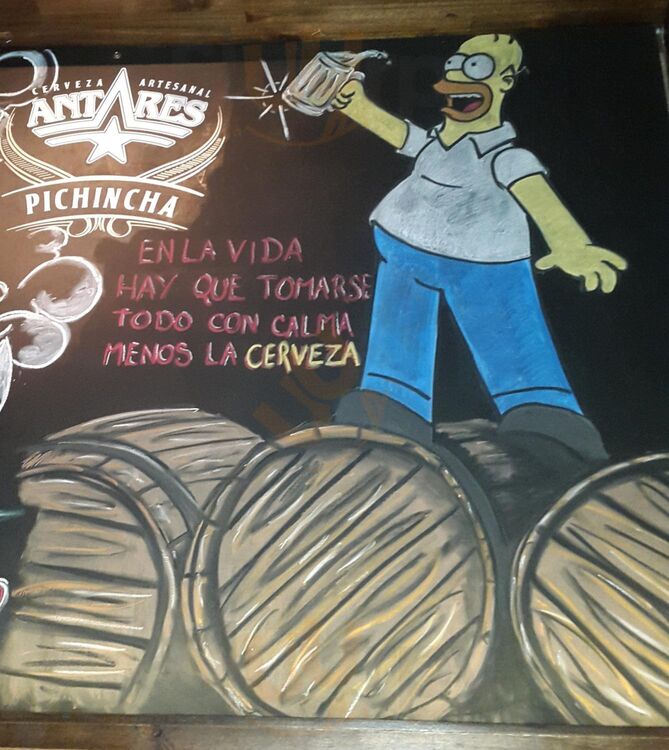 CERVEZA ARTESANAL
ANTARES
PICHINCHA
EN LA VIDA
HAY QUE TOMARSE
TODO CON CALMA
MENOS LA CERVEZA